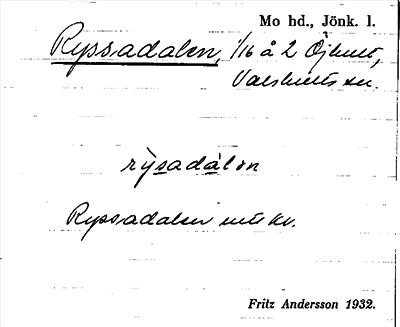 Mo hd., Jönk. l.
Ryssadalen, 1/16 å 2 Öjhult,
Valshults sn.
rỳsadàlən
Ryssadalen enl kv.
Fritz Andersson 1932.